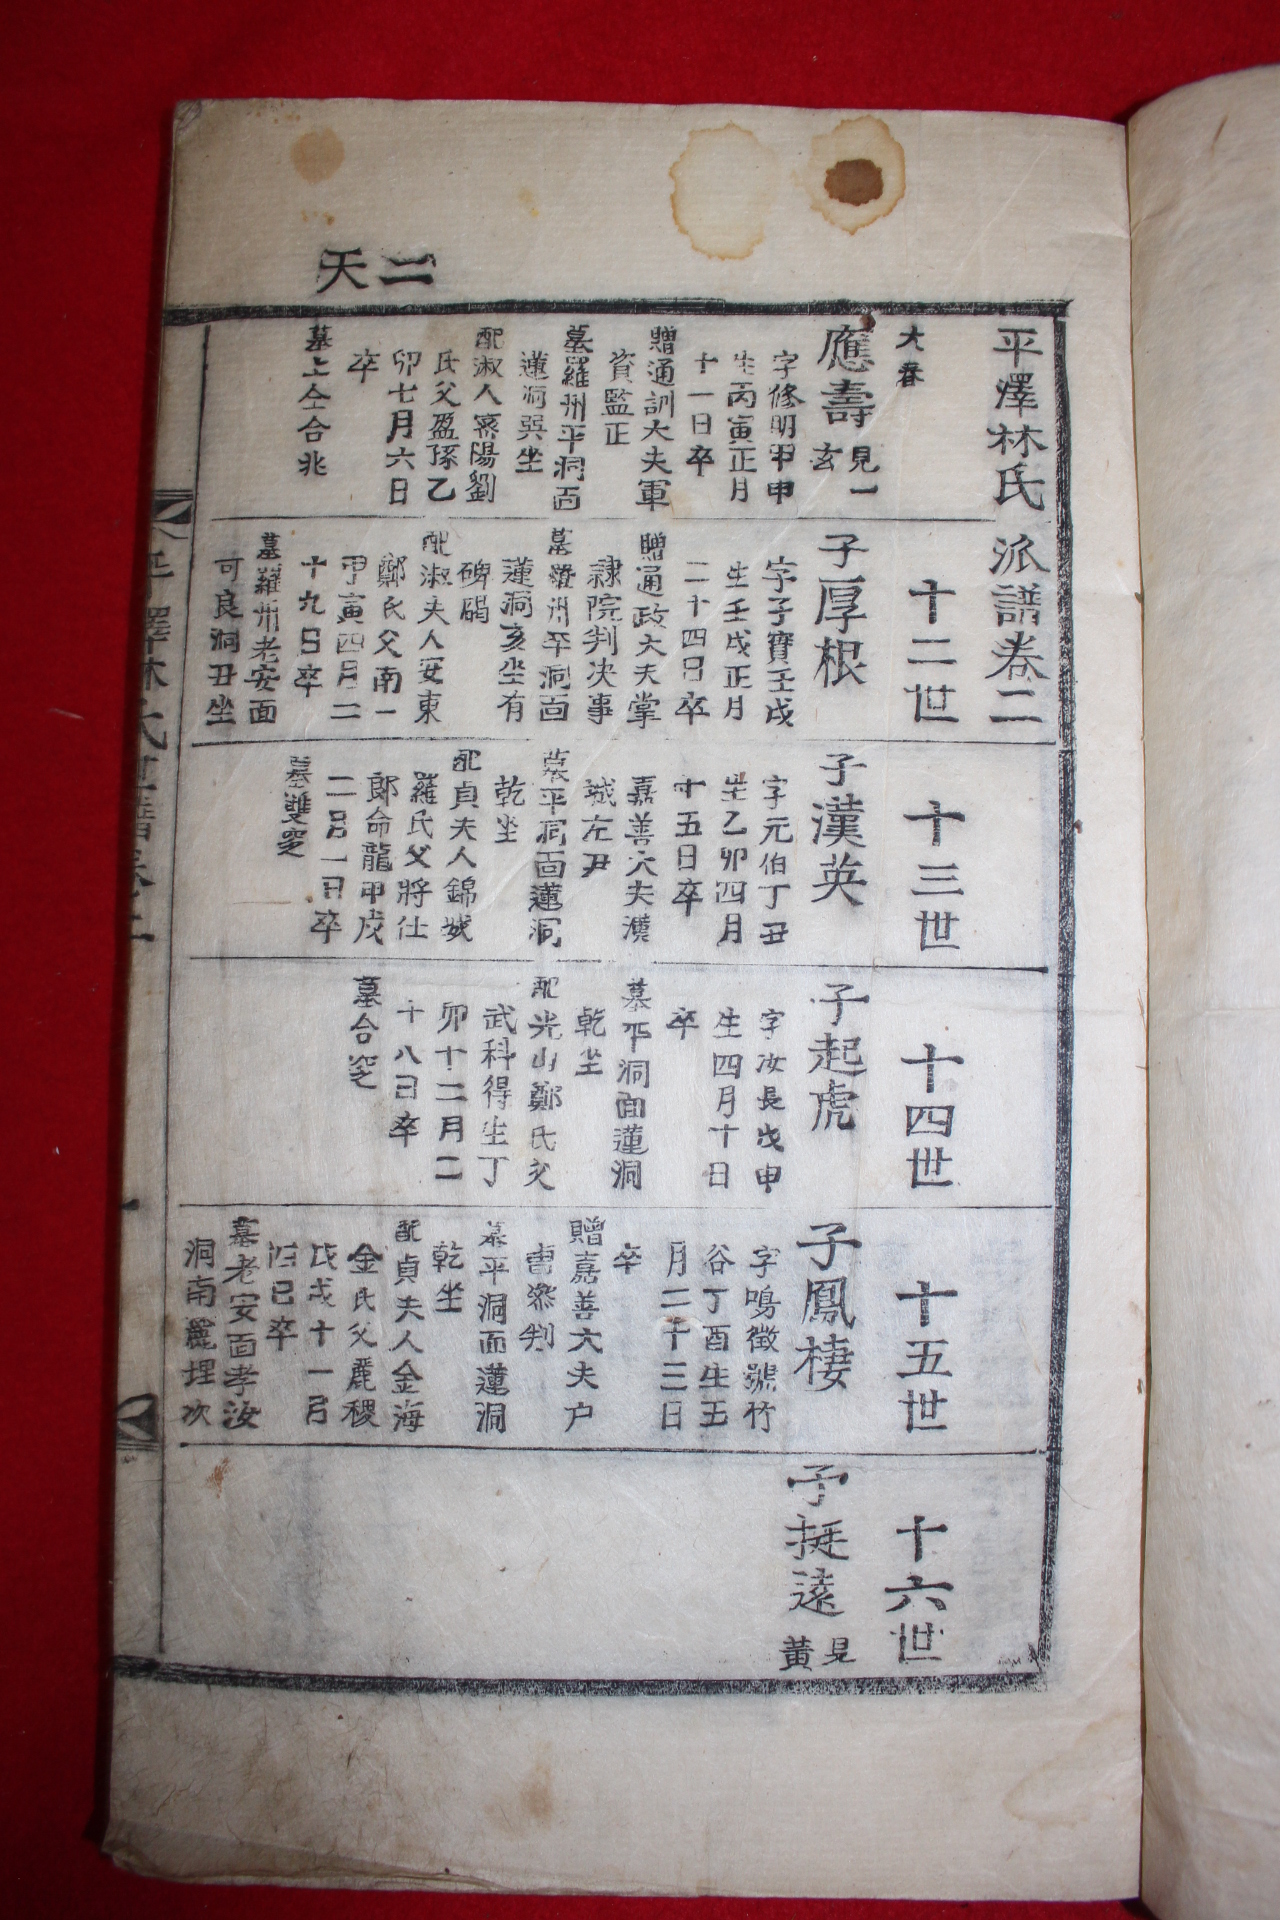 二天
平澤林氏派譜卷二
十二世
十三世
十四世
十五世
十六世
大春
應壽
見一
玄
字修明甲申
生丙寅正月
十一日卒
贈通訓大夫軍
資監正
墓羅州平洞面
蓮洞巽坐
配淑人密陽劉
氏父盈孫乙
卯七月六日
卒
墓上仝合兆
子厚根
字子寶壬戌
生壬戌正月
二十四日卒
贈通政大夫掌
隷院判决事
墓羅州平洞面
蓮洞亥坐有
碑碣
配淑夫人安東
鄭氏父南一
甲寅四月二
十九日卒
墓羅州老安面
可良洞丑坐
子漢英
字元伯丁丑
生乙卯四月
十五日卒
嘉善大夫漢
城左尹
墓平洞面蓮洞
乾坐
配貞夫人錦城
羅氏父將仕
郞命龍甲戌
二月一日卒
墓雙窆
子起虎
字汝長戊申
生四月十日
卒
墓平洞面蓮洞
乾坐
配光山鄭氏父
武科得生丁
卯十二月二
十八日卒
墓合窆
子鳳棲
字鳴徵號竹
谷丁酉生五
月二十三日
卒
贈嘉善大夫户
曹叅判
墓平洞面蓮洞
乾坐
配貞夫人金海
金氏父麗稷
戊戌十一月
日巳卒
墓老安面孝汝
洞南麓埋次
子挺遠
見
黃
平澤林氏派譜卷二
一